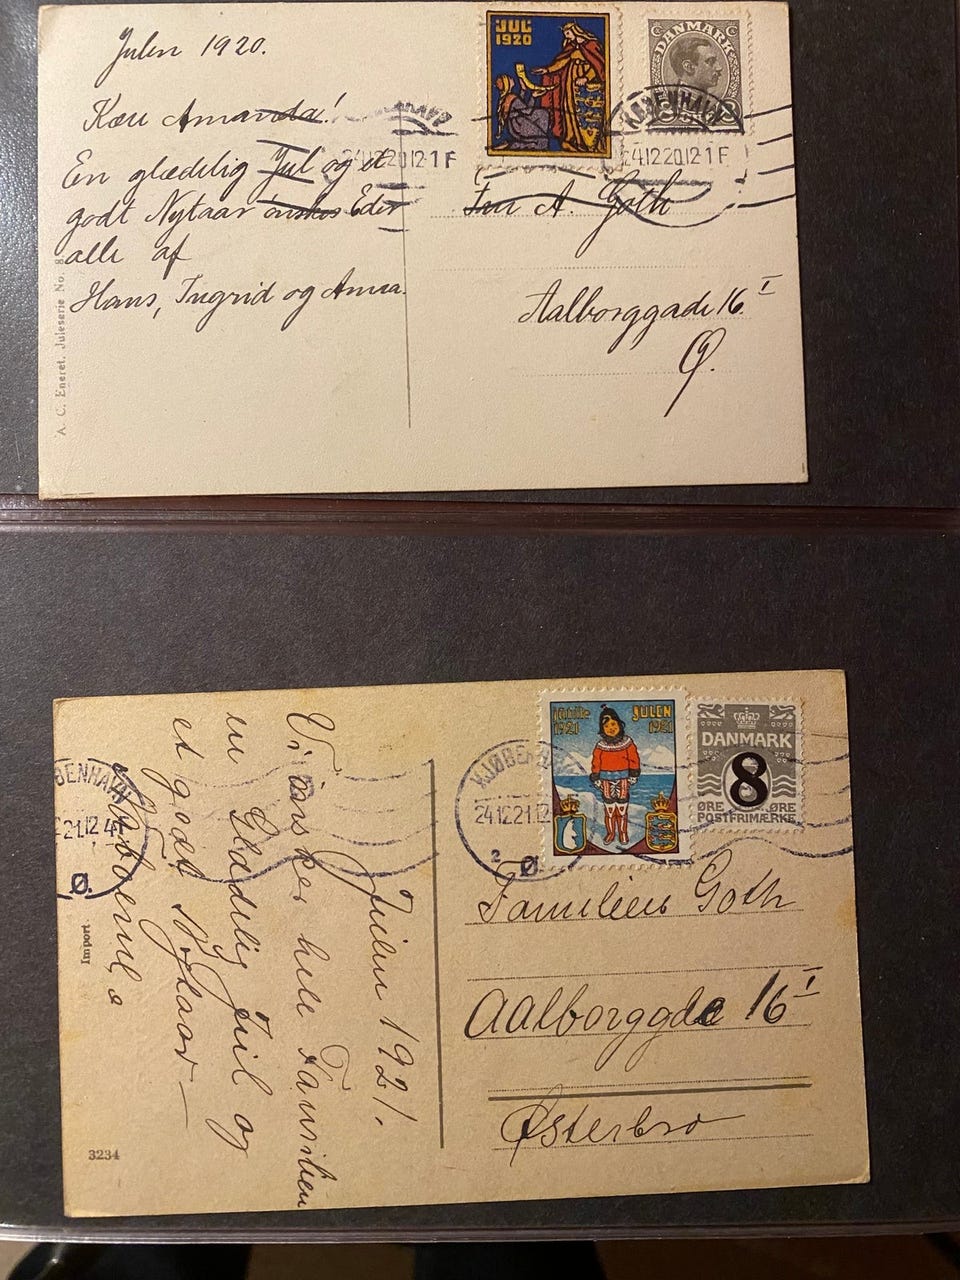 Julen 1920.
Kære Amanda!
En glædelig Jul og et
godt Nytaar ønskes Eder
alle af
Hans, Ingrid og Anna.
A. C. Eneret. Juleserie No. 8
JUL
1920
DANMARK
KØBENHAVN
24.12.20.12-1 F
24.12.20.12-1 F
Fru A. Goth
Aalborggade 16 I
Ø.
Julen 1921.
Vi ønsker hele Familien
en Glædelig Juil og
et godt Nytaar
Import
3234
JULEN
1921
1921
DANMARK
8
ØRE ØRE
POSTFRIMÆRKE
KJØBENHAVN
24.12.21.12
2 Ø.
ØBENHAVN
21.12 4
Ø.
Familien Goth
Aalborggde 16 I
Østerbro